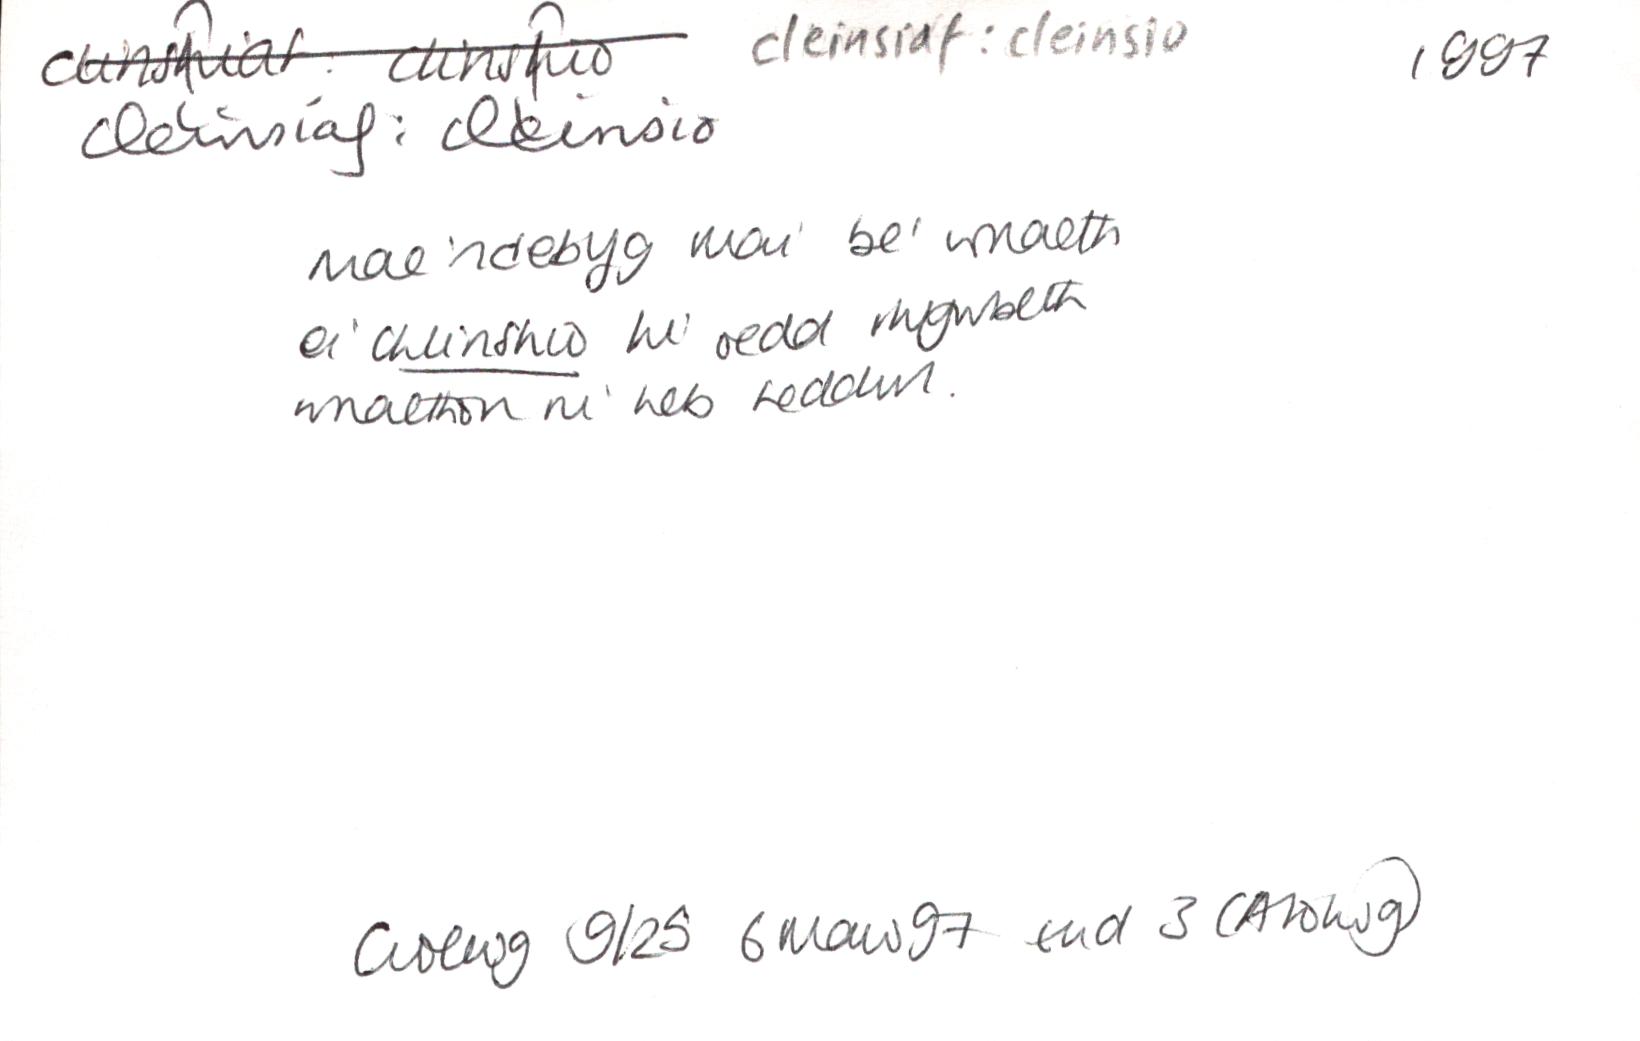 cleinshiaf: cleinshio cleinsiaf: cleinsio 1997
cleinsiaf: cleinsio
Mae'n debyg mai be' wnaeth
ei chleinshio hi oedd rhywbeth
wnaethon ni heb feddwl.
Golwg 9/25 6 Maw 97 tud 3 (Atolwg)